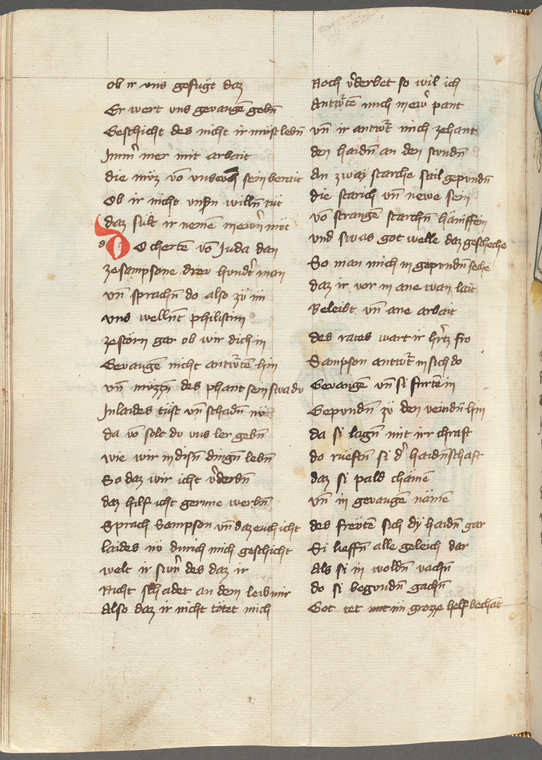 ob ir vns gefůgt daz
Er wert vns gevangē gebñ
Geschicht des nicht ir můst lebñ
Immˀ mer mit arbait
die můz vō vnserm sein berait
Ob ir nicht vnsˀn willñ tůt
daz sult ir nemē mervn můt
Do chertē vō Juda dan
ze sampsone drev hundˀt man
vñ sprachñ do also zů im
vns wellnt philistim
zestörn gar ob wir dich in
Gevangē nicht antwˀtē hin
vñ můzzñ des phant sein swa dv
In laides tůst vñ schadñ nv
da vō solt dv vns ler gebñ
wie wir in disñ dingñ lebñ
So daz wir icht vˀderbñ
daz hilf icht gerůwe werbñ
Sprach Sampson vñ daz euch icht
laides nv durich mich geschicht
welt ir swˀn des daz ir
Nicht schadet an dem leib mir
Also daz ir nicht tötet mich
Noch vˀderbet so wil ich
Antwˀtē mich mewˀ pant
vñ ir antwˀt mich zehant
den haidñ an den stundñ
An zwai starche sail gepundñ
die starich vñ newe sein
vō strangē starchñ hänffein
vnd swas got welle daz geschehe
So man mich in gepundñ sehe
daz ir vor in ane wan lait
Beleibt vñ ane arbait
des rates wart ir hˀtz fro
Sampson antwˀt in sich do
Gevangē vñ si furtē in
Gepundñ zů den veindñ hin
da si lagñ mit irr chraft
do rueftñ si dˀ haidñschaft
daz si pald chämē
vñ in gevangē nämē
des frevtē sich dy haidñ gar
Si lieffñ alle geleich dar
Als si in woldñ vachñ
do si begvndñ gachñ
Got tet im grozze helf bechāt